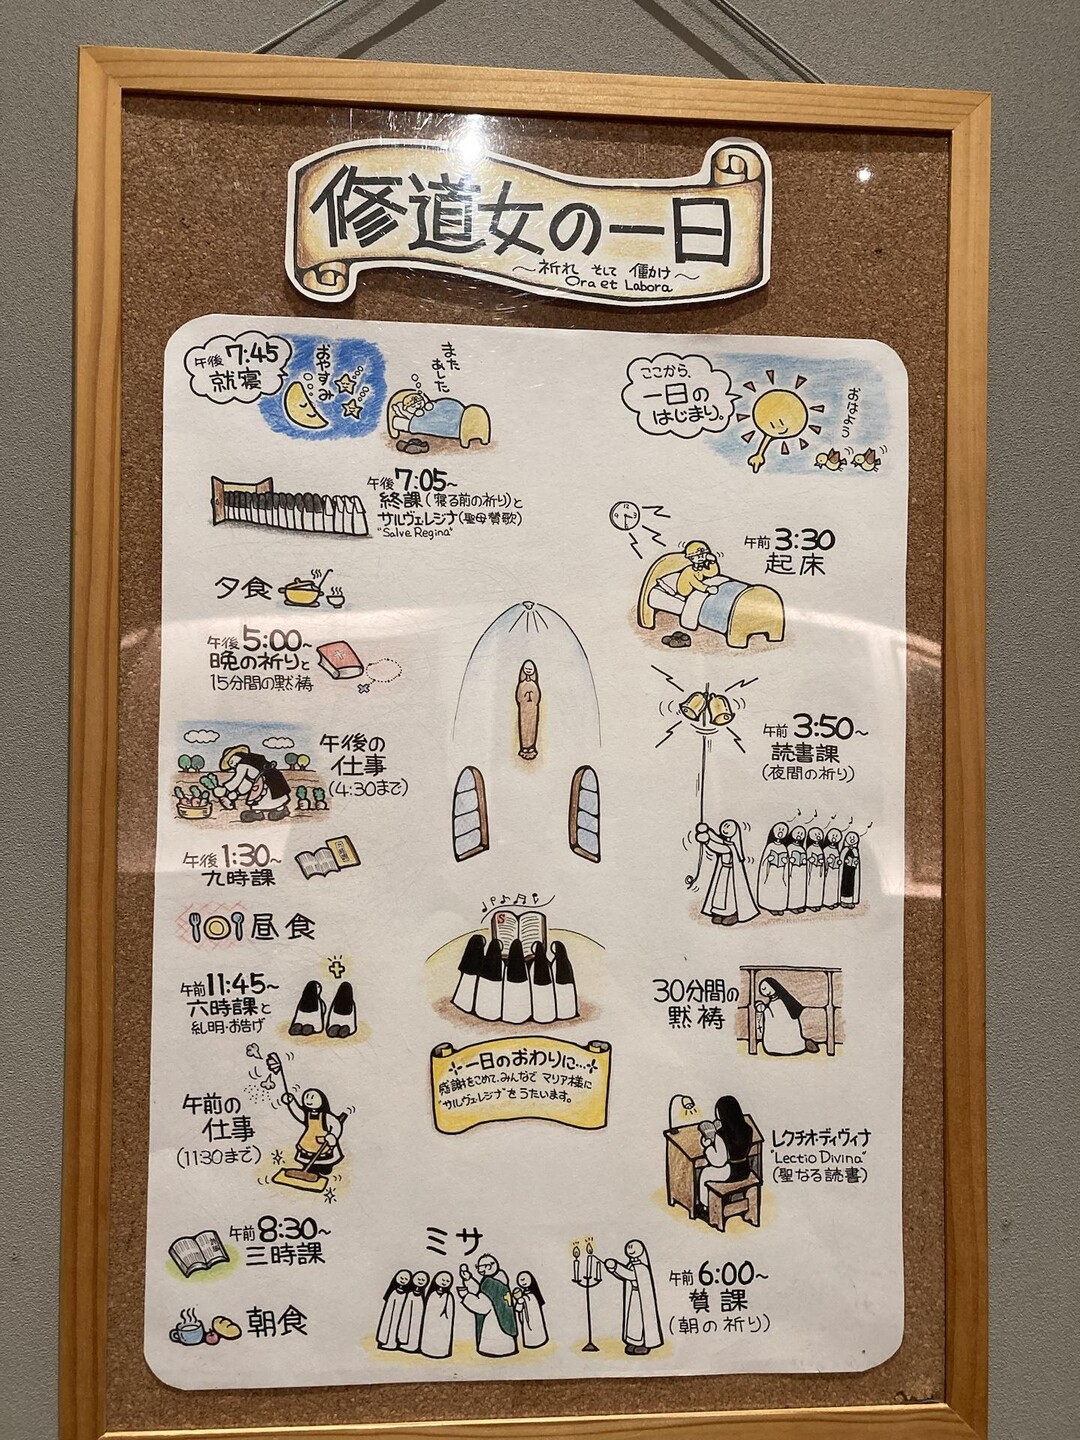 修道女の一日
～祈れ そして 働かけ～
Ora et Labora
ここから、
一日の
はじまり。
おはよう
午前3:30
起床
午前3:50～
読書課
(夜間の祈り)
30分間の
黙祷
レクチオ・ディヴィナ
"Lectio Divina"
(聖なる読書)
午前6:00～
賛課
(朝の祈り)
ミサ
朝食
午前8:30～
三時課
午前の
仕事
(11:30まで)
午前11:45～
六時課と
糺明・お告げ
昼食
午後1:30～
九時課
午後の
仕事
(4:30まで)
午後5:00～
晩の祈りと
15分間の黙祷
夕食
午後7:05～
終課(寝る前の祈り)と
サルヴェレジナ(聖母賛歌)
"Salve Regina"
午後7:45
就寝
おやすみ
また
あした
一日のおわりに…
感謝をこめて、みんなで マリア様に
"サルヴェレジナ"をうたいます。